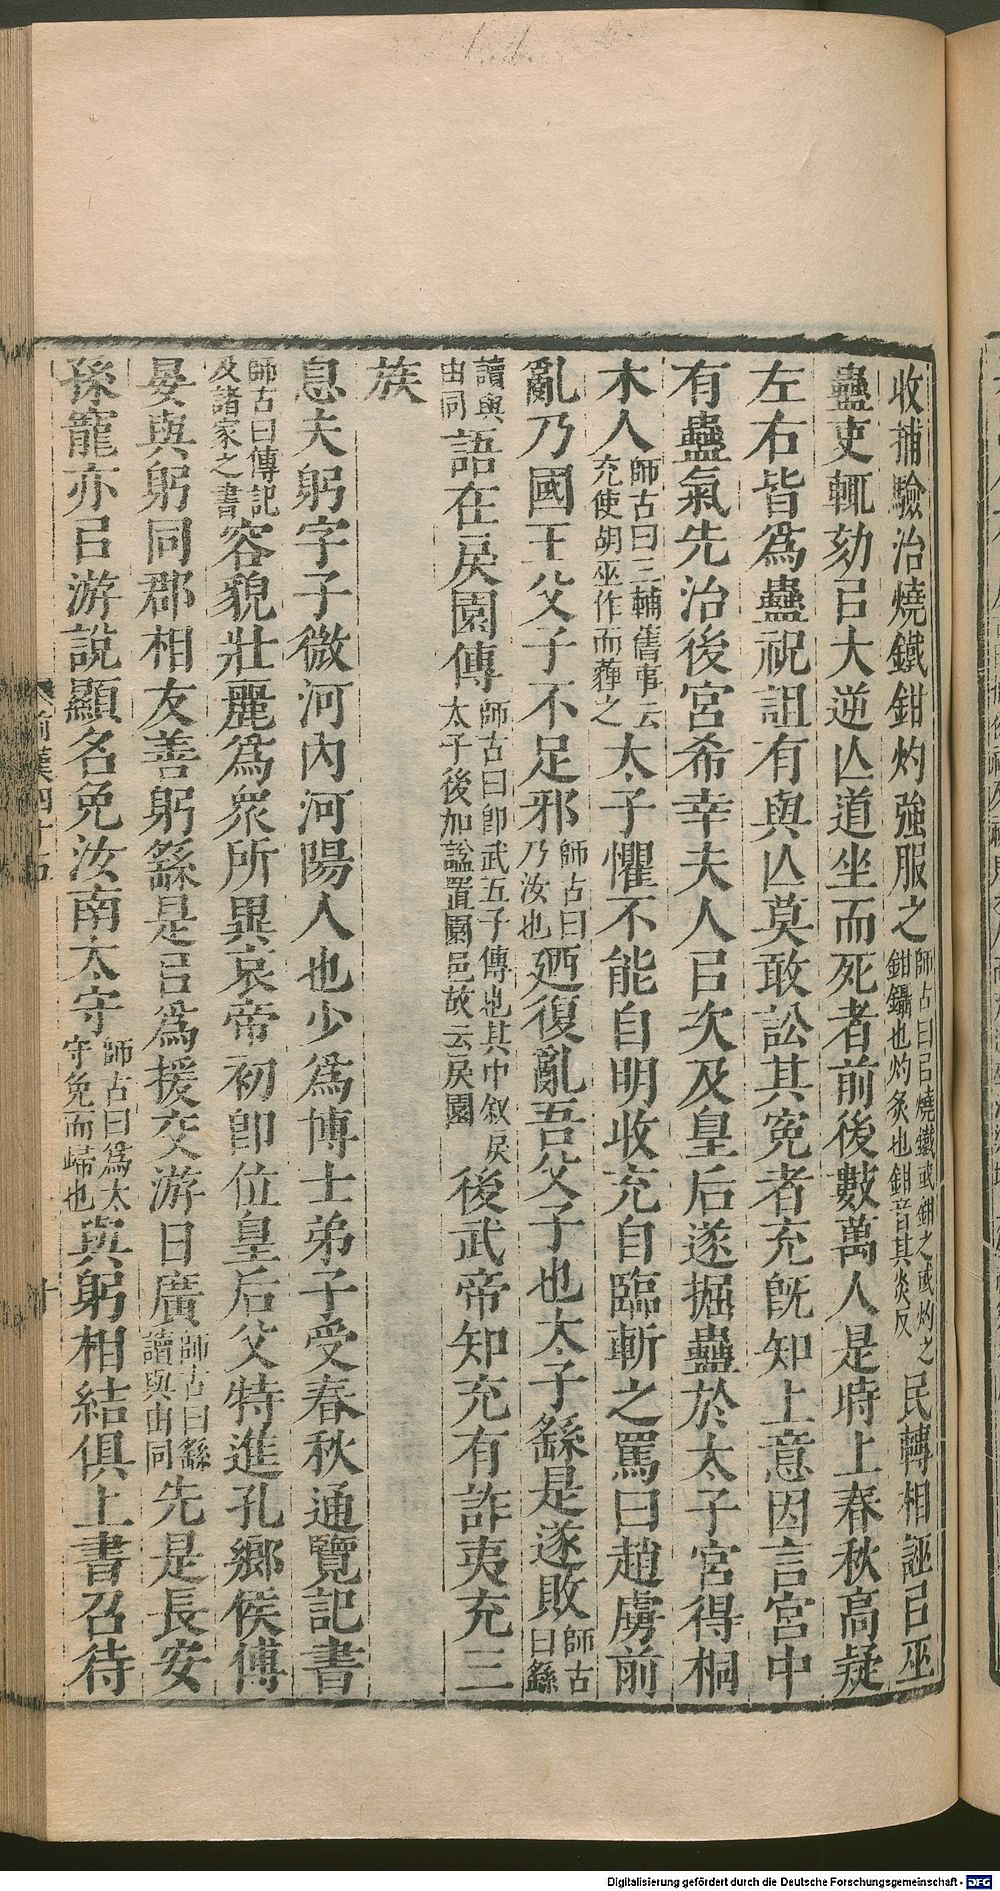 收捕驗治燒鐵鉗灼強服之師古曰㠯燒鐵或鉗之或灼之鉗鑷也灼炙也鉗音其炎反民轉相誣㠯巫
蠱吏輒劾㠯大逆亾道坐而死者前後數萬人是時上春秋高疑
左右皆爲蠱祝詛有與亾莫敢訟其冤者充旣知上意因言宮中
有蠱氣先治後宮希幸夫人㠯次及皇后遂掘蠱於太子宮得桐
木人師古曰三輔舊事云充使胡巫作而薶之太子懼不能自明收充自臨斬之罵曰趙虜前
亂乃國王父子不足邪師古曰乃汝也廼復亂吾父子也太子繇是遂敗師古曰繇
讀與由同語在戾園傳師古曰卽武五子傳也其中叙戾太子後加諡置園邑故云戾園後武帝知充有詐夷充三
族
息夫躬字子微河內河陽人也少爲博士弟子受春秋通覽記書
師古曰傳記及諸家之書容貌壯麗爲衆所異哀帝初卽位皇后父特進孔鄉侯傅
晏與躬同郡相友善躬繇是㠯爲援交游日廣師古曰繇讀與由同先是長安
孫寵亦㠯游說顯名免汝南太守師古曰爲太守免而歸也與躬相結俱上書召待
前漢四十五
十
Digitalisierung gefördert durch die Deutsche Forschungsgemeinschaft - DFG